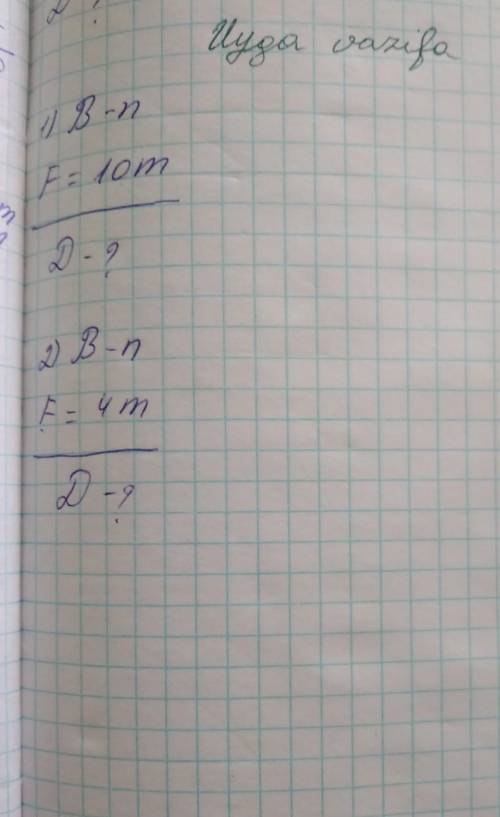 Uyga vazifa
1) B-n
F = 10m
D - ?
2) B-n
F = 4m
D - ?